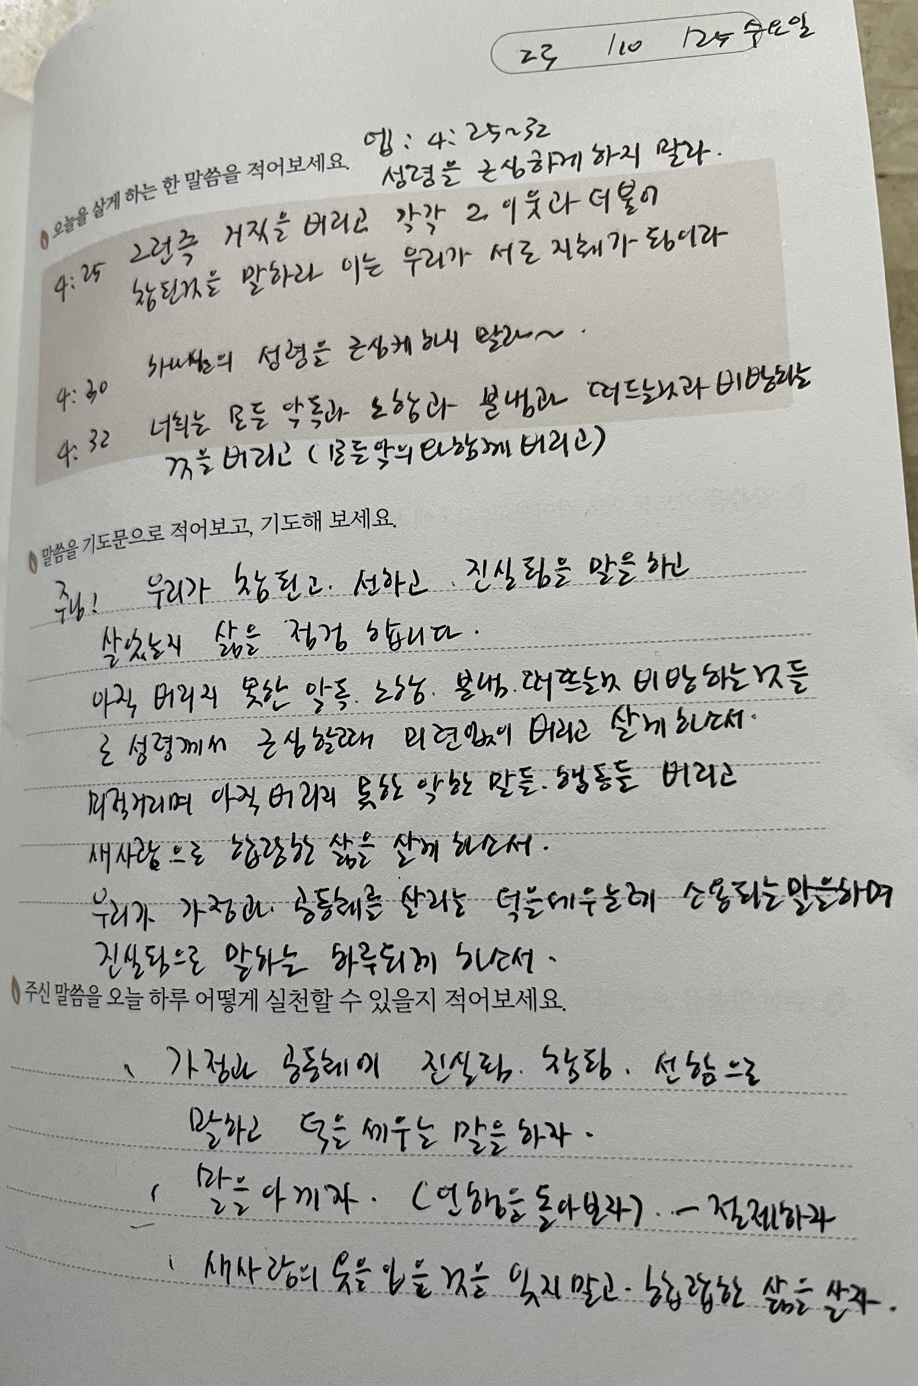 2주 1/10 1/24 수요일
엡: 4: 25~32
오늘을 살게 하는 한 말씀을 적어보세요.
성령을 근심하게 하지 말라.
4:25 그런즉 거짓을 버리고 각각 그 이웃과 더불어
참된것을 말하라 이는 우리가 서로 지체가 됨이라
4:30 하나님의 성령을 근심케 하지 말라~.
4:32 너희는 모든 악독과 노함과 분냄과 떠드는것과 비방하는
것을 버리고 (모든악의와 함께 버리고)
말씀을 기도문으로 적어보고, 기도해 보세요.
주님! 우리가 참되고. 선하고. 진실됨을 말을 하고
살았는지 삶을 점검 합니다.
아직 버리지 못한 악독. 노함. 분냄. 떠드는것 비방하는것들
로 성령께서 근심할때 미련없이 버리고 살게 하소서.
미적거리며 아직 버리지 못한 악한 말들. 행동들 버리고
새사람으로 합당한 삶을 살게 하소서.
우리가 가정과. 공동체를 살리는 덕을세우는데 소용되는말을하며
진실됨으로 말하는 하루되게 하소서.
주신 말씀을 오늘 하루 어떻게 실천할 수 있을지 적어보세요.
가정과 공동체에 진실됨. 참됨. 선함으로
말하고 덕을 세우는 말을 하자.
말을 아끼자. (언행을 돌아보자). - 절제하자
새사람의 옷을 입을 것을 잊지말고. 합당한 삶을 살자.